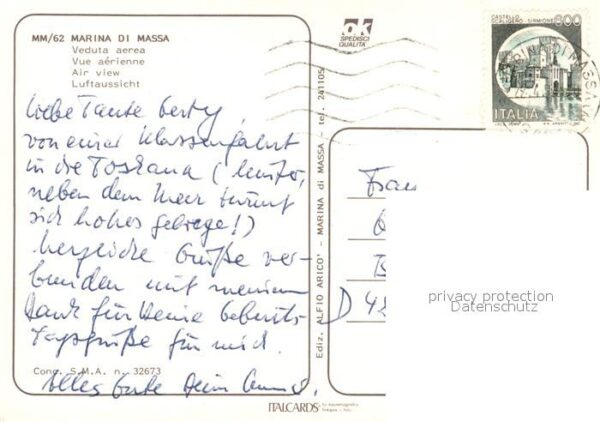 MM/62 MARINA DI MASSA
Veduta aerea
Vue aérienne
Air view
Luftaussicht
OK
SPEDISCI
QUALITÀ
CASTELLO
SCALIGERO - SIRMIONE
800
ITALIA
MARINA DI MASSA
Liebe Tante Gerty,
von einer Klassenfahrt
in die Toskana (
neben dem Meer türmt
sich hohes Gebirge!)
herzliche Grüße ver-
bunden mit meinem
Dank für Deine Geburts-
tagsgrüße für mich.
Alles Gute Dein
Conc. S.M.A. n. 32673
Ediz. ALFIO ARICO' - MARINA di MASSA - tel. 241105
Frau
D 42
privacy protection
Datenschutz
ITALCARDS